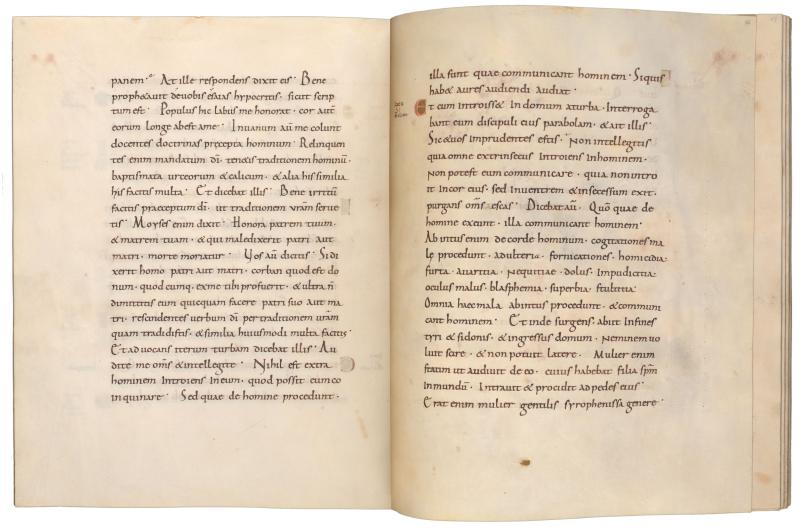 panem· At ille respondens dixit eis· Bene
prophetauit de uobis esaias hypocritis· sicut scrip
tum est· Populus hic labiis me honorat· cor aut̄
eorum longe abest a me· In uanum aū me colunt
docentes doctrinas precepta hominum· Relinquen
tes enim mandatum dī· tenetis traditionem hominū·
baptismata urceorum & calicum· & alia his similia
his factis multa· Et dicebat illis· Bene irritū
factis praeceptum dī· ut traditionem urām serue
tis· Moyses enim dixit· Honora patrem tuum·
& matrem tuam· & qui maledixerit patri aut
matri· morte moriatur· Vos aū dictis· Si di
xerit homo patri aut matri· corban quod est do
num· quod cumq· ex me tibi profuerit· & ultra n̄
dimittitis eum quicquam facere patri suo aut ma
tri· rescindentes uerbum dī per traditionem urām
quam tradidistis· & similia huiusmodi multa factis·
Et aduocans iterum turbam dicebat illis· Au
dite me om̄s & intellegite· Nihil est extra
hominem introiens in eum· quod possit eum co
inquinare· Sed quae de homine procedunt·
illa sunt quae communicant hominem· Si quis
hab& aures audiendi audiat·
Et cum introiss& in domum a turba· interroga
bant eum discipuli eius parabolam· & ait illis·
Sic & uos imprudentes estis· Non intellegitis
quia omne extrinsecus introiens in hominem·
Non potest eum communicare· quia non intro
it in cor eius· sed in uentrem & in secessum exit·
purgans om̄s escas· Dicebat aū· Quō quae de
homine exeunt· illa communicant hominem·
Ab intus enim de corde hominum· cogitationes ma
lę procedunt· adulteria· fornicationes· homicidia·
furta· auaritia· nequitiae· dolus· impudicitia·
oculus malus· blasphemia· superbia· stultitia·
Omnia haec mala ab intus procedunt· & communi
cant hominem· Et inde surgens· abiit in fines
tyri & sidonis· & ingressus domum· Neminem uo
luit scire· & non potuit latere· Mulier enim
statim ut audiuit de eo· cuius habebat filia sp̄m
inmundū· Intrauit & procidit ad pedes eius·
Erat enim mulier gentilis syrophenissa genere·